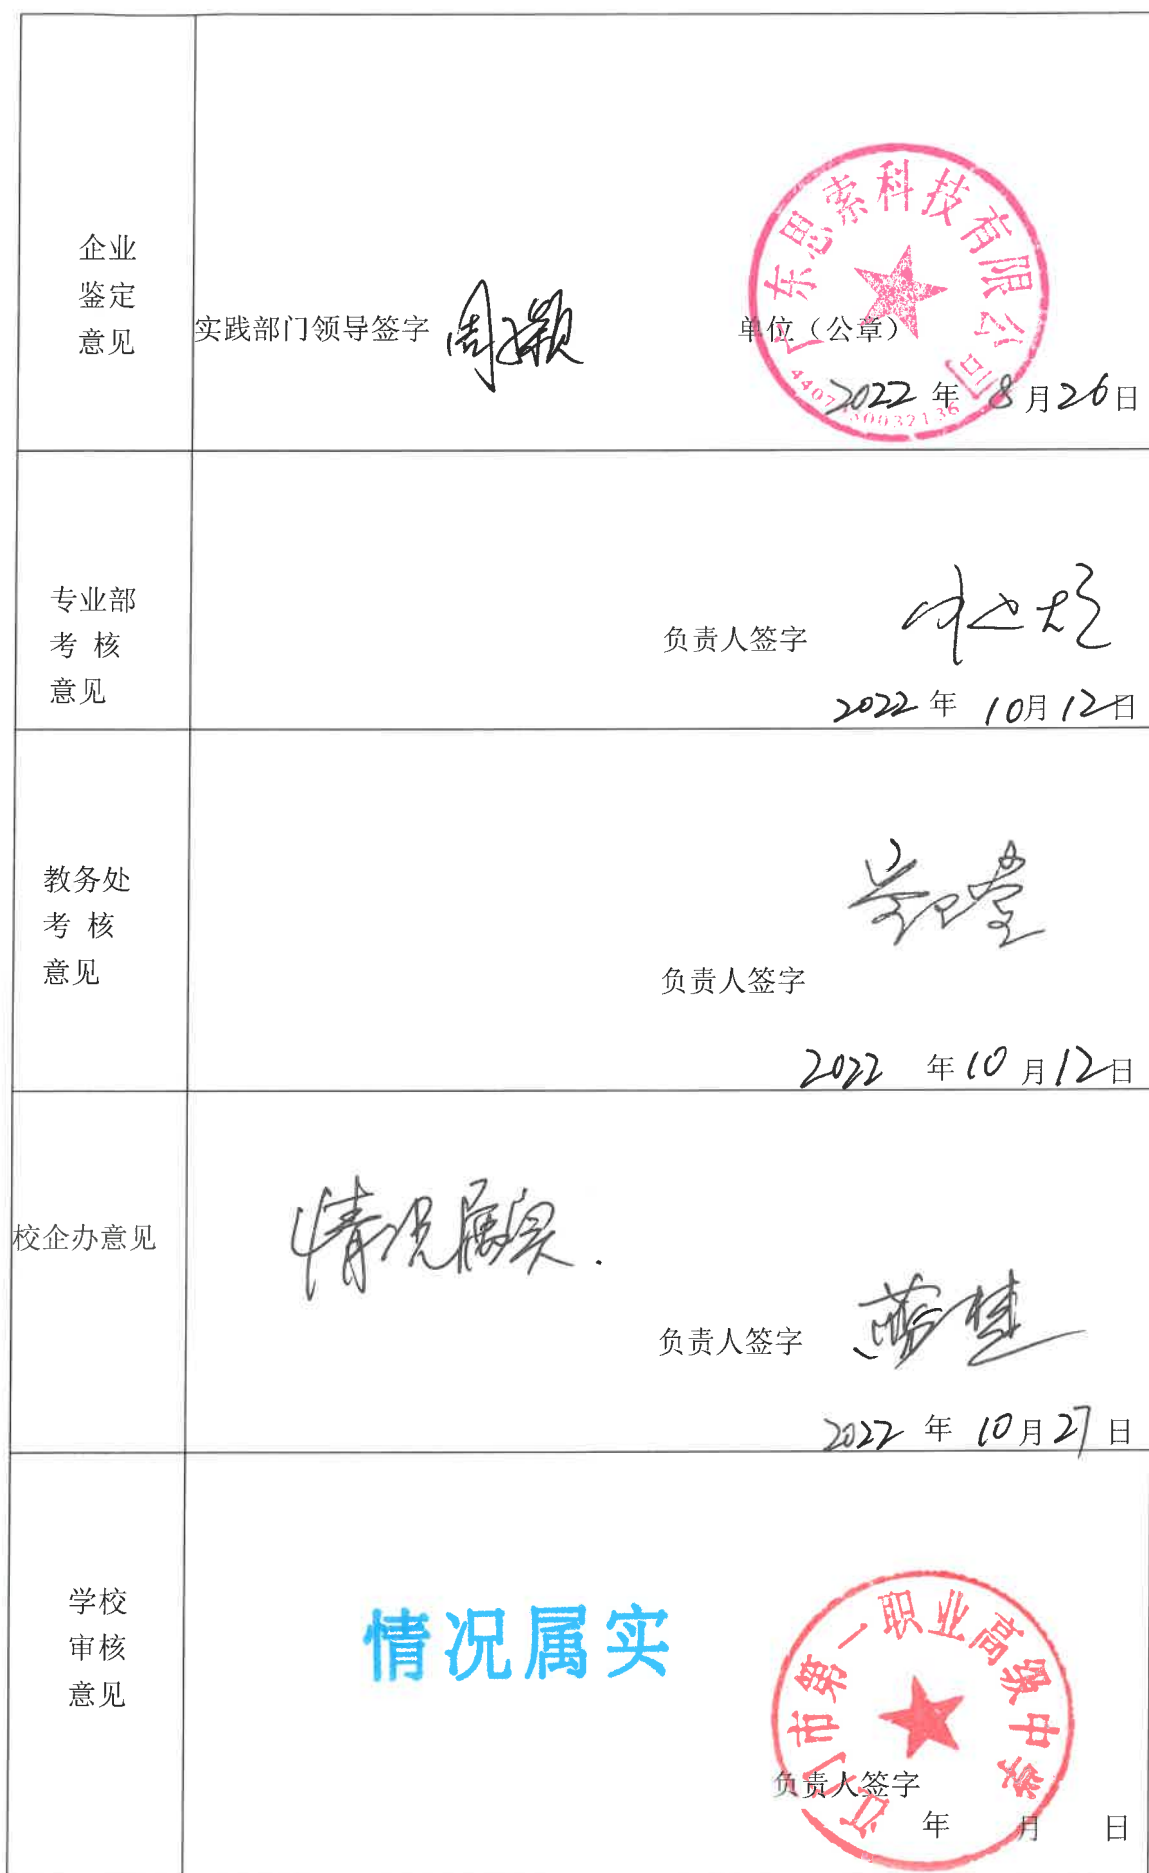 企业
鉴定
意见
实践部门领导签字
单位（公章）
广东思索科技有限公司
2022 年 8 月 26 日
专业部
考 核
意见
负责人签字
2022 年 10 月 12 日
教务处
考 核
意见
负责人签字
2022 年 10 月 12 日
校企办意见
情况属实.
负责人签字
2022 年 10 月 27 日
学校
审核
意见
情况属实
江门市第一职业高级中学
负责人签字
年 月 日